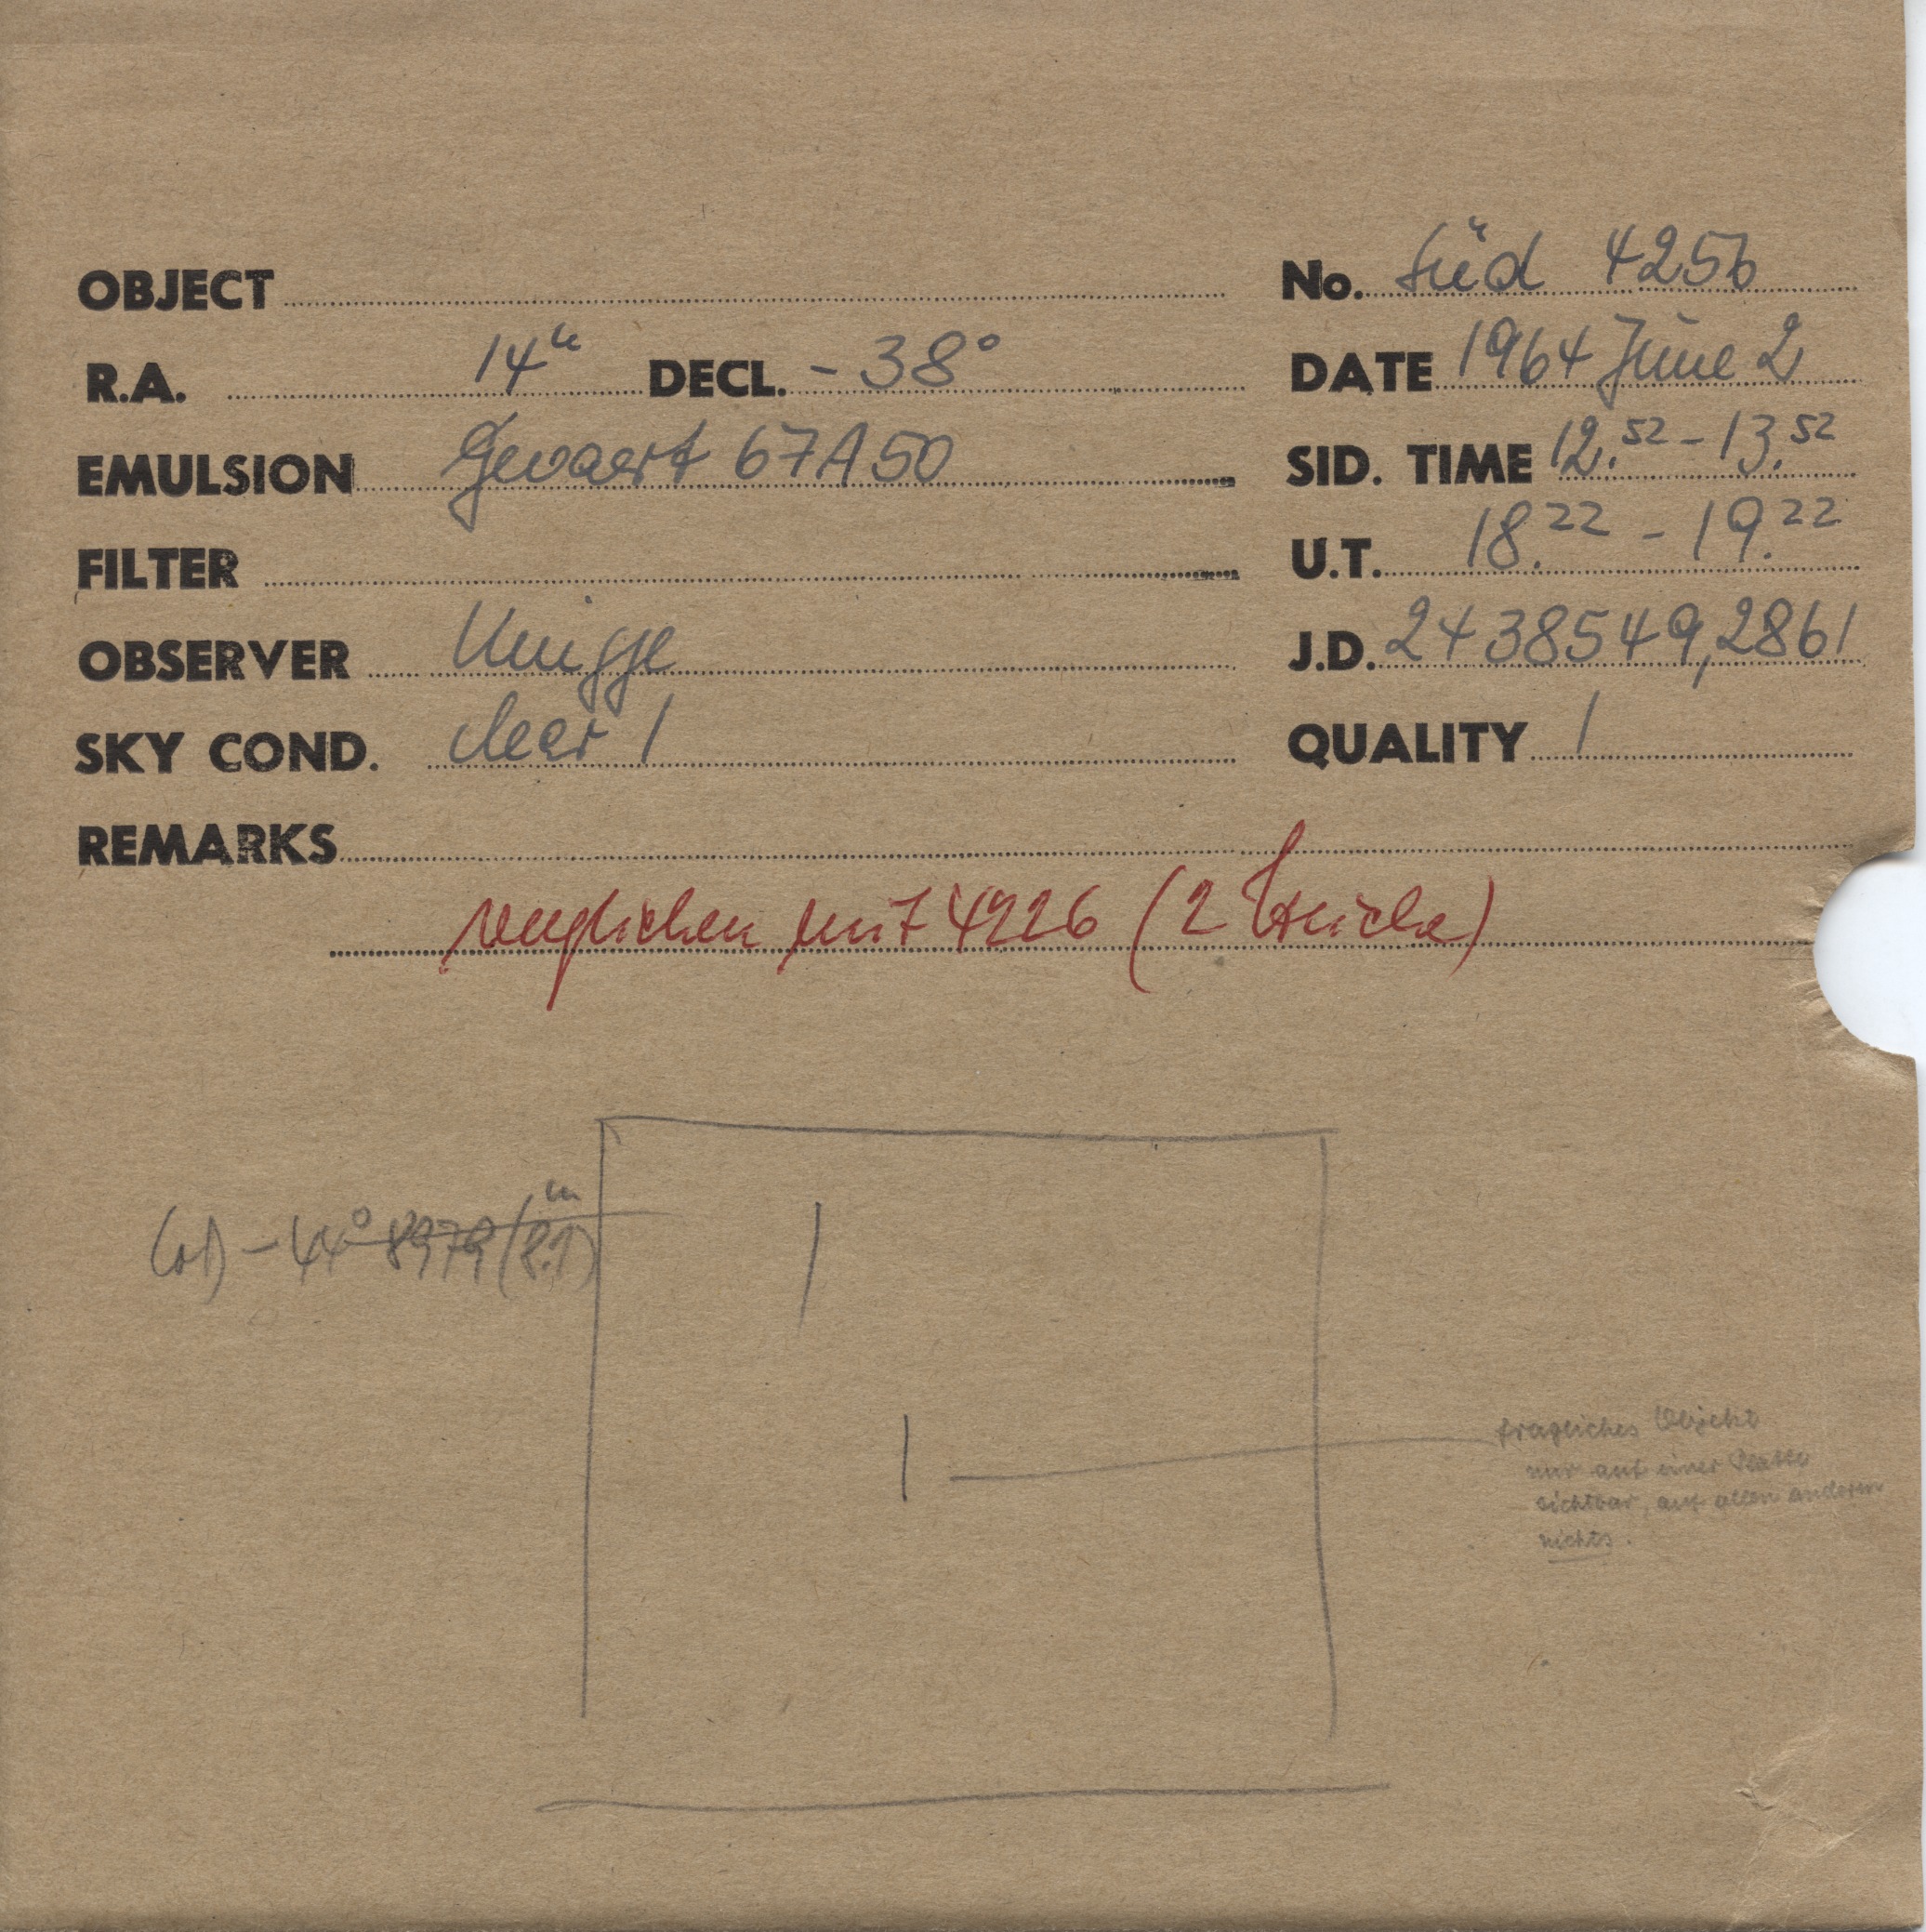 OBJECT
No. Süd 4256
R.A. 14h DECL. -38°
DATE 1964 June 2
EMULSION Gevaert 67A50
SID. TIME 12.52 - 13.52
FILTER
U.T. 18.22 - 19.22
OBSERVER Knigge
J.D. 2438549,2861
SKY COND. clear 1
QUALITY 1
REMARKS
verglichen mit 4226 (2 Striche)
-44° 8979 (8.1m)
fragliches Objekt
nur auf einer Platte
sichtbar, auf allen anderen
nichts.